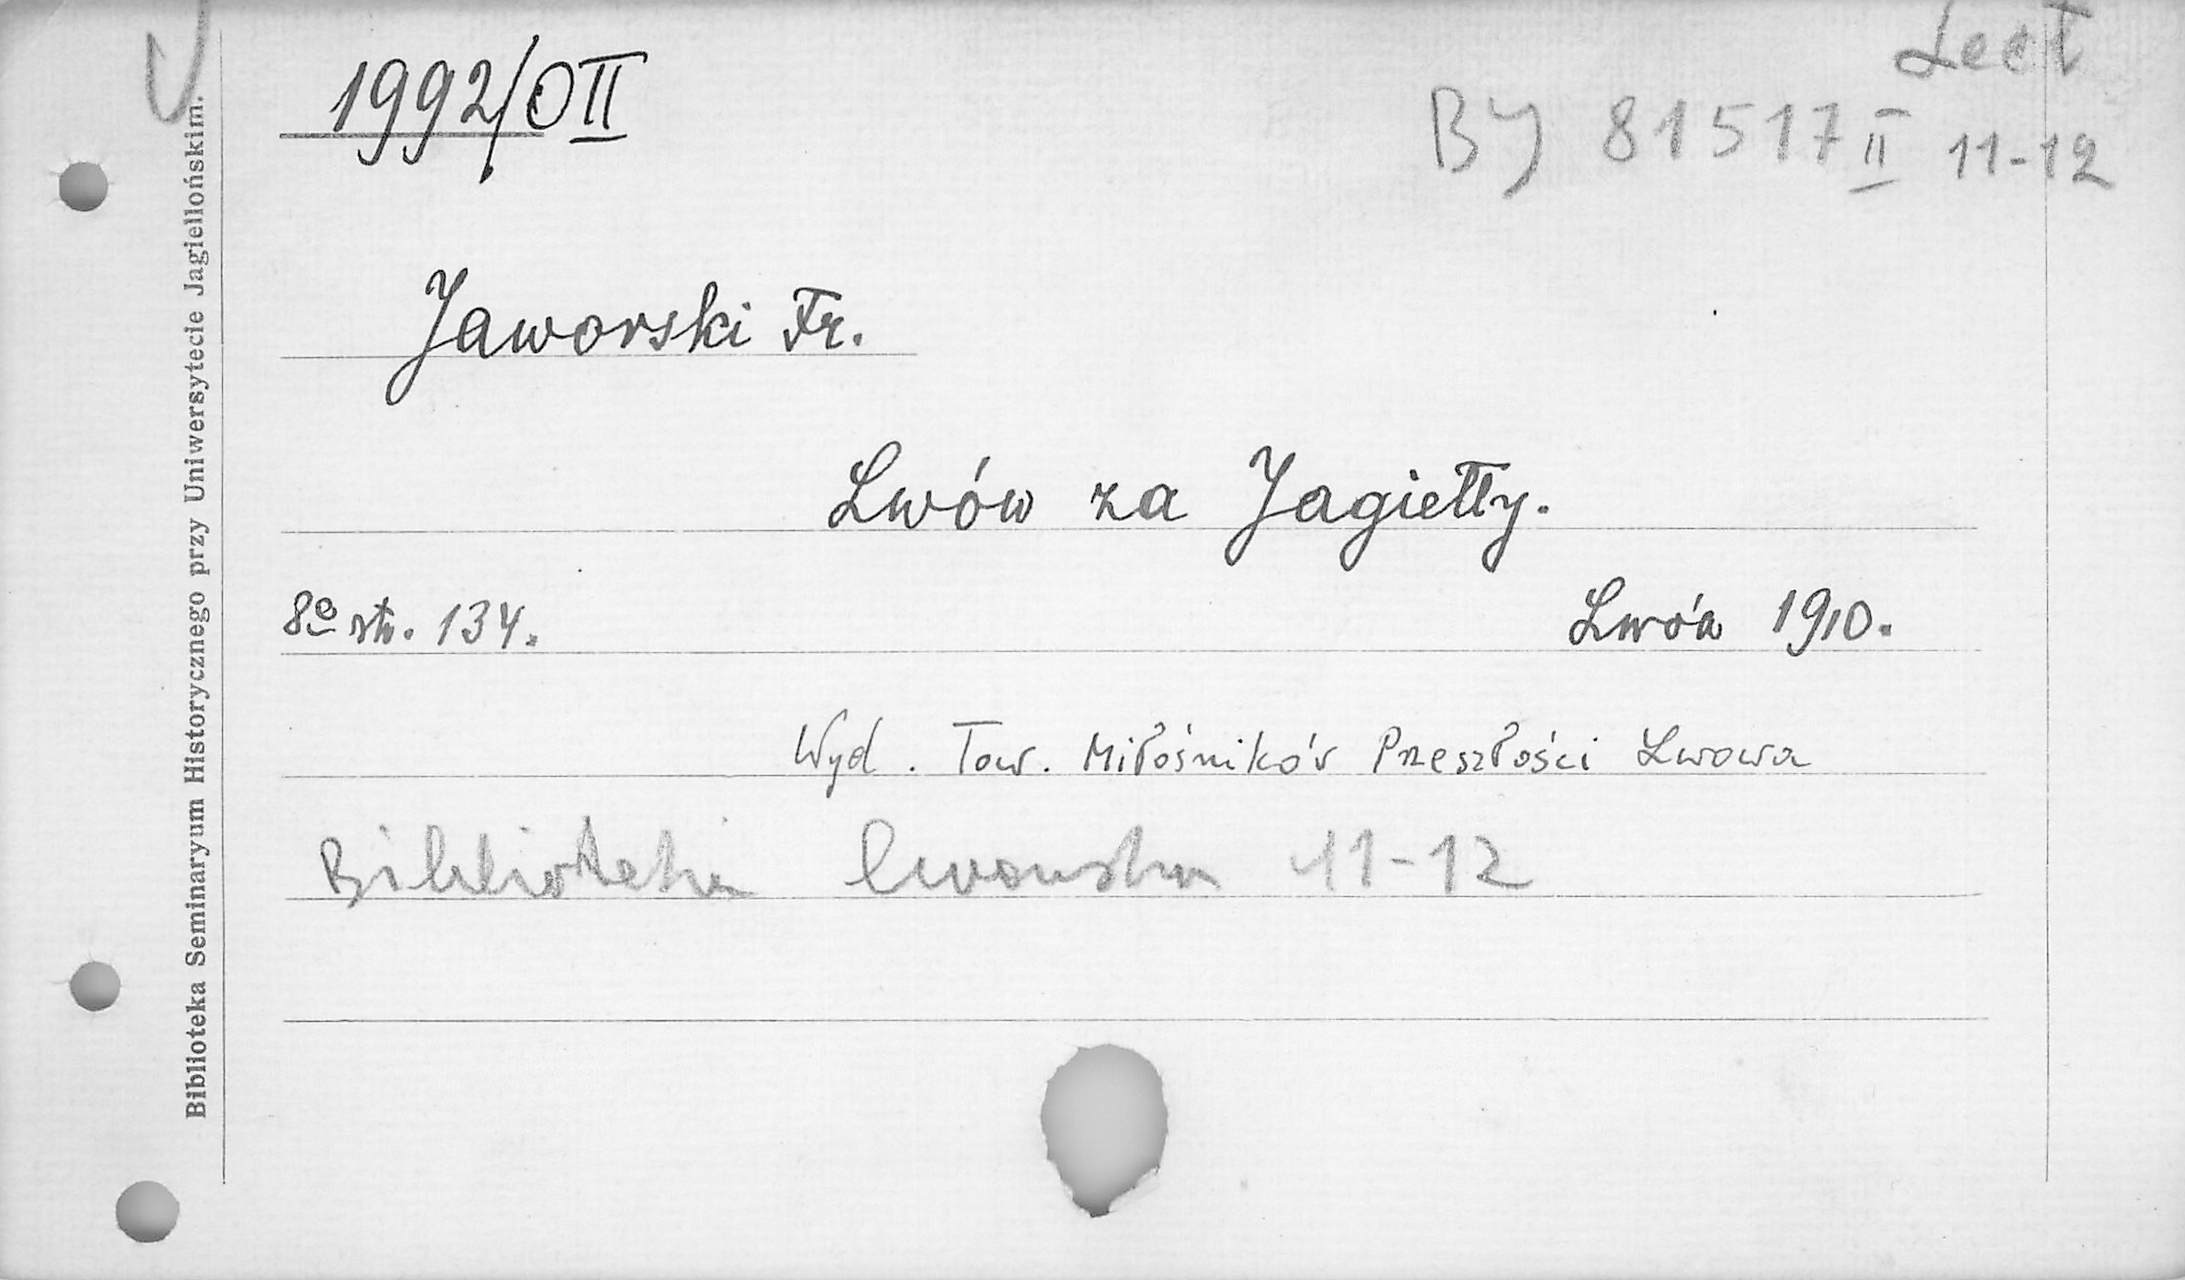 Lect
1992/OII
BJ 81517 II 11-12
Jaworski Fr.
Lwów za Jagiełły.
8º str. 134.
Lwów 1910.
Wyd. Tow. Miłośników Przeszłości Lwowa
Biblioteka lwowska 11-12
Biblioteka Seminaryum Historycznego przy Uniwersytecie Jagiellońskim.